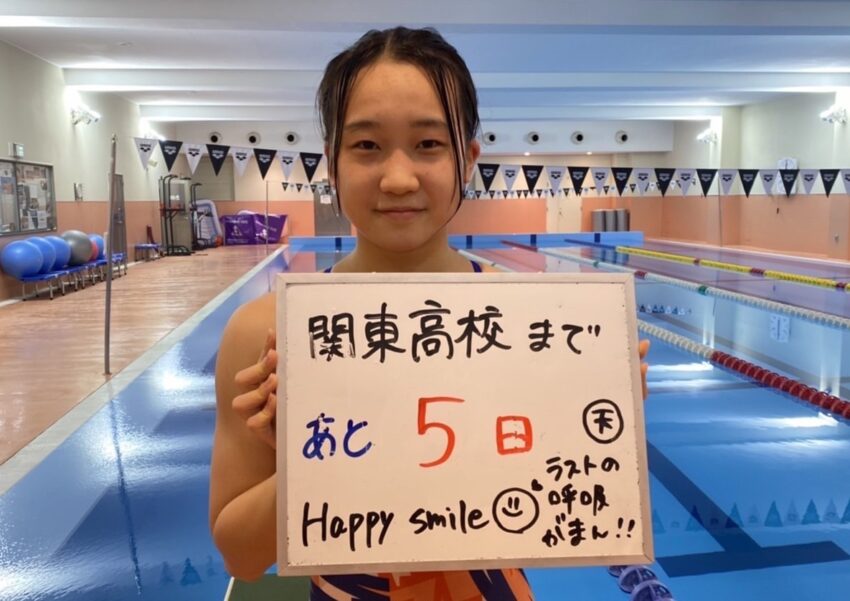 関東高校まで
あと 5 日
Happy smile
ラストの
呼吸
がまん!!